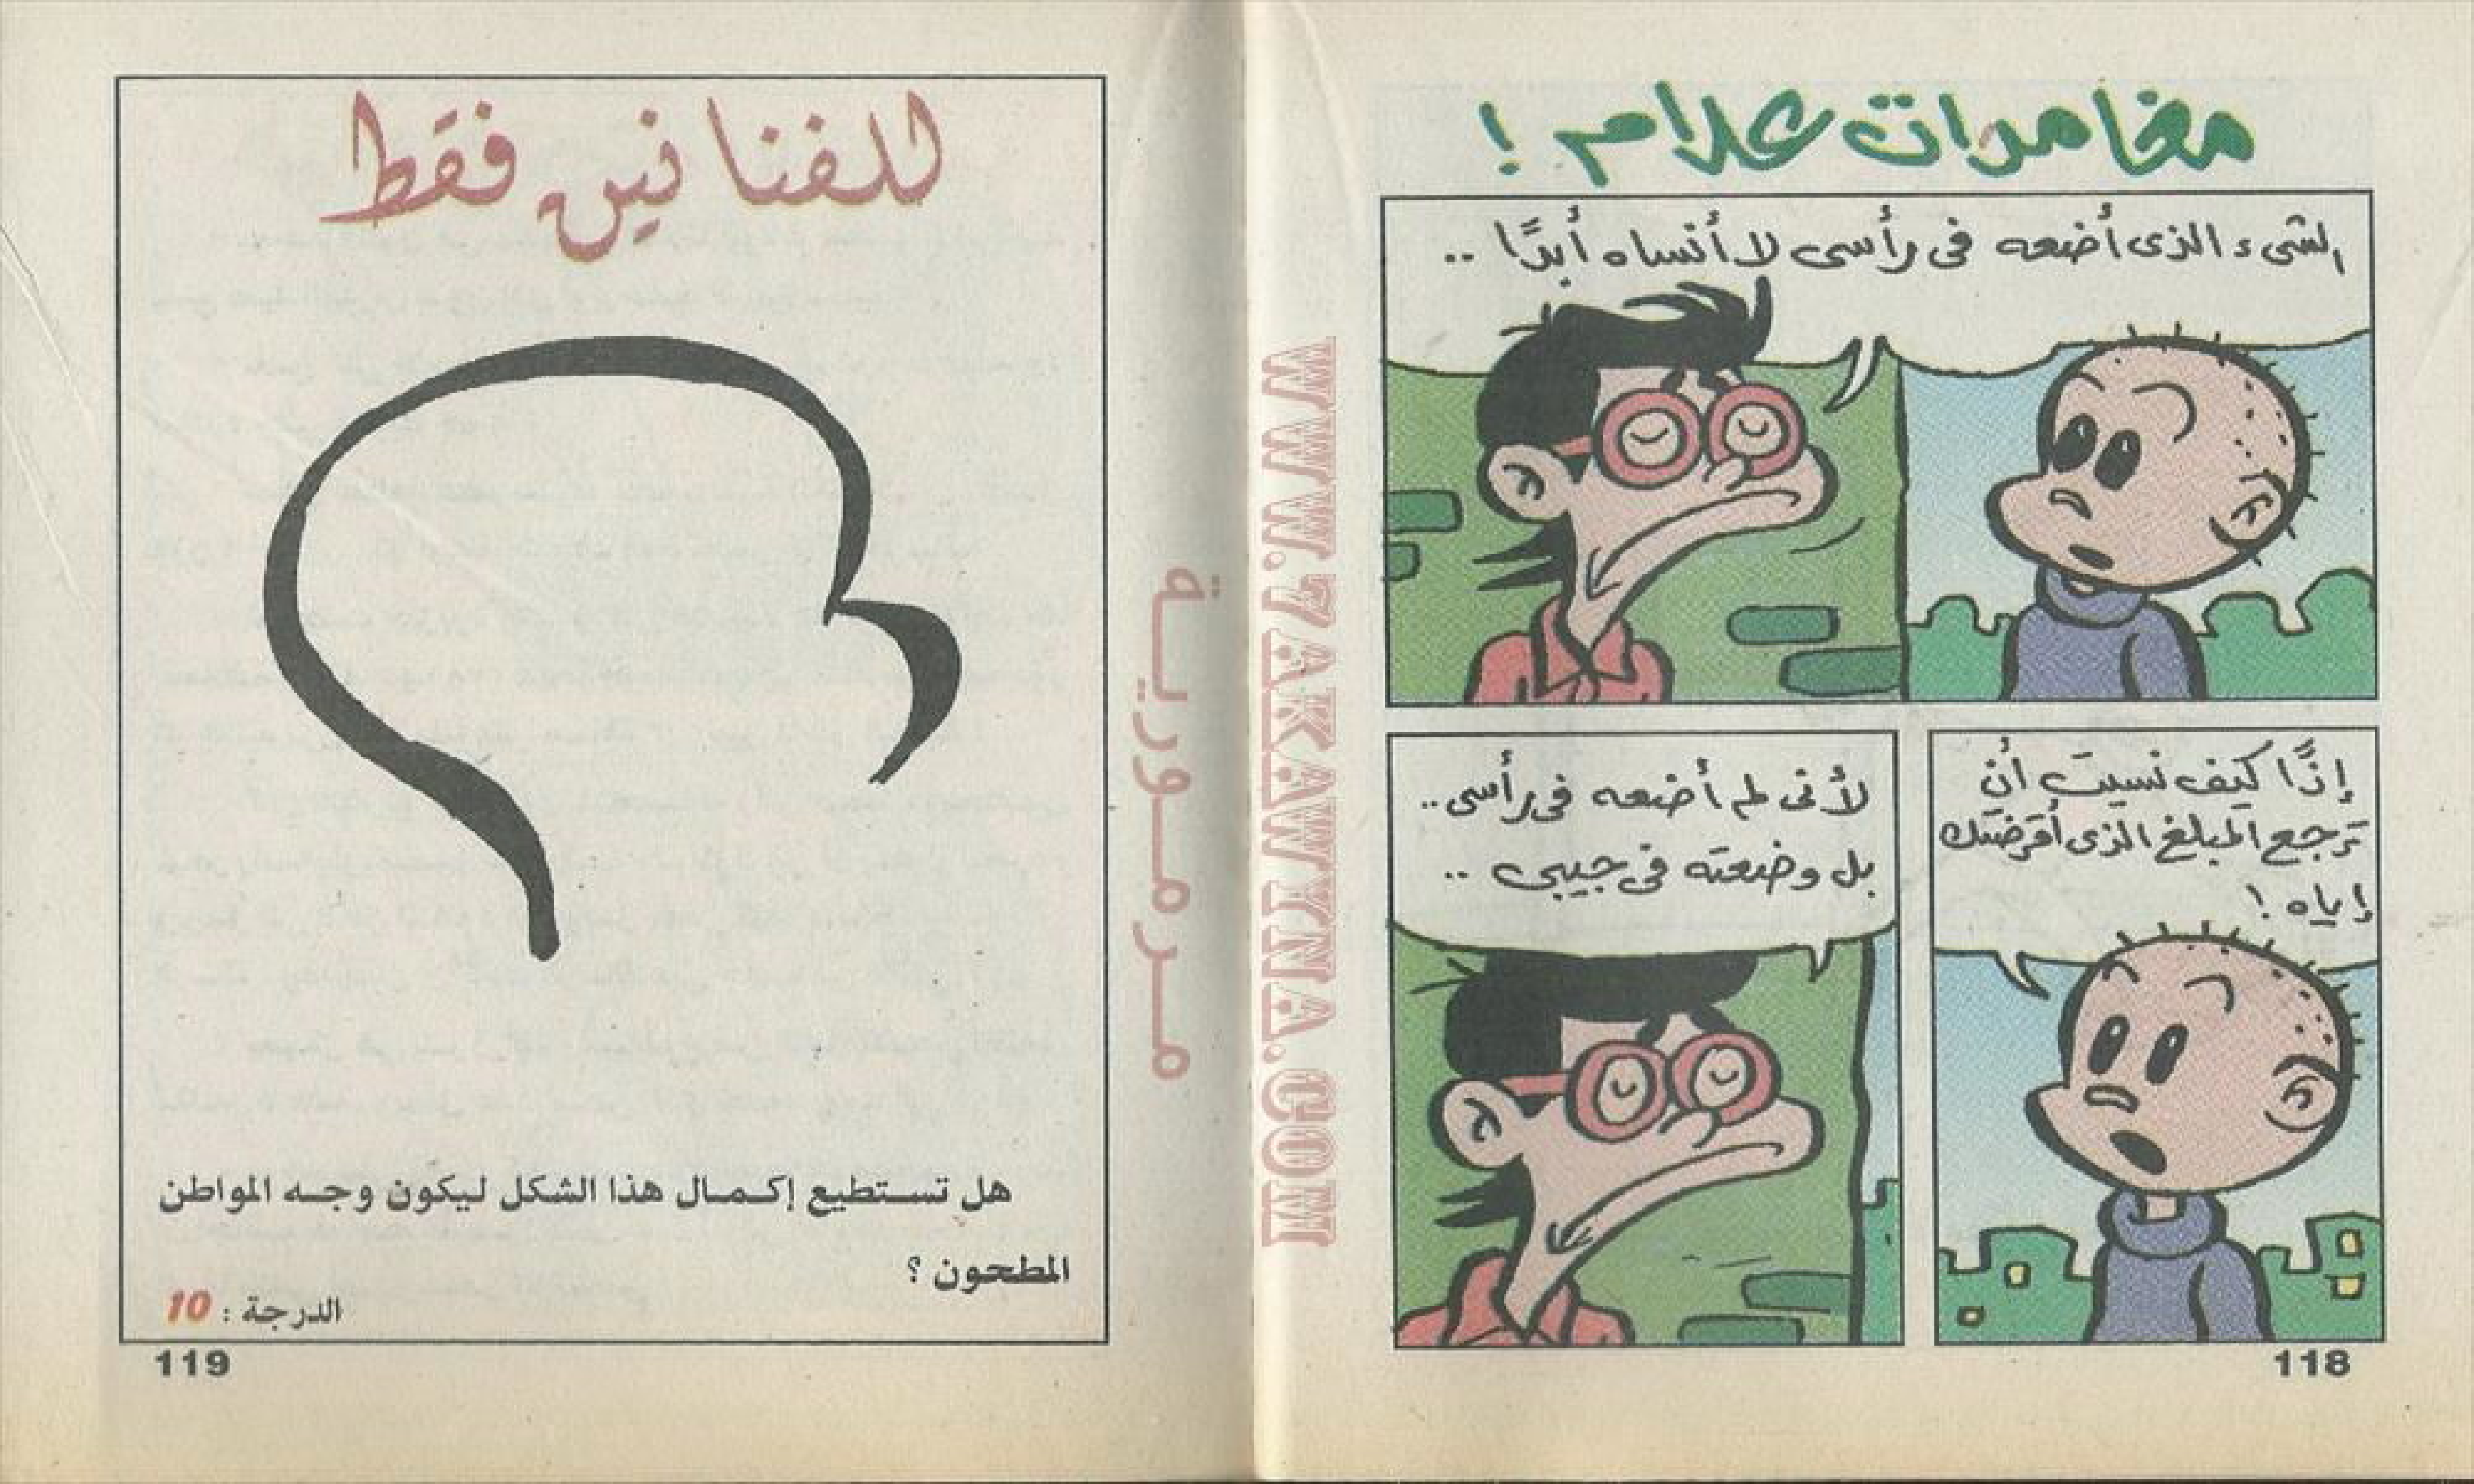 مغامرات علام !
الشىء الذى أضعه فى رأسى لا أنساه أبدًا ..
إذًا كيف نسيت أن
ترجع المبلغ الذى أقرضتك
إياه !
لأنى لم أضعه فى رأسى ..
بل وضعته فى جيبى ..
118
WWW.7AKAWYNA.COM
مرمورية
للفنانين فقط
هل تستطيع إكمال هذا الشكل ليكون وجه المواطن
المطحون ؟
الدرجة : 10
119